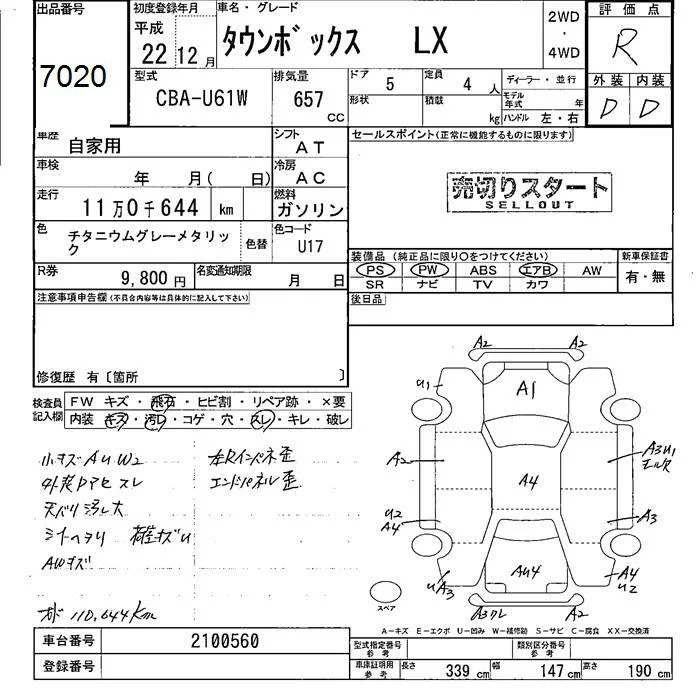 出品番号
7020
初度登録年月
平成
22 12月
車名・グレード
タウンボックス LX
2WD
・
4WD
評価点
R
外装 内装
D D
型式
CBA-U61W
排気量
657
CC
ドア
5
定員
4 人
形状
積載
kg
ディーラー・並行
モデル年式 年
ハンドル 左・右
車歴
自家用
シフト
AT
車検
年 月( 日)
冷房
AC
走行
11万0千644 km
燃料
ガソリン
色
チタニウムグレーメタリック
色替
色コード
U17
R券
9,800円
名変通知期限
月 日
セールスポイント(正常に機能するものに限ります)
売切りスタート
SELLOUT
装備品(純正品に限り○をつけてください)
PS PW ABS エアB AW
SR ナビ TV カワ
新車保証書
有・無
注意事項申告欄(不具合内容等は具体的に記入して下さい)
後日品
修復歴 有〔箇所 〕
検査員記入欄
FW キズ・飛石・ヒビ割・リペア跡・×要
内装 キズ・汚レ・コゲ・穴・スレ・キレ・破レ
小キズ AUW2
外装Dアセ スレ
天バリ汚レ大
AWキズ
110,644Km
エンドパネル歪
A2 A2
U1
A1
A2
A4
A3U1
U2
A4
A3
AU4
UA3
A4
U2
A2
スペア
A－キズ E－エクボ U－凹み W－補修跡 S－サビ C－腐食 XX－交換済
車台番号
2100560
登録番号
型式指定番号
参考
類別区分番号
参考
車庫証明用
参考
長さ 339 cm
幅 147 cm
高さ 190 cm